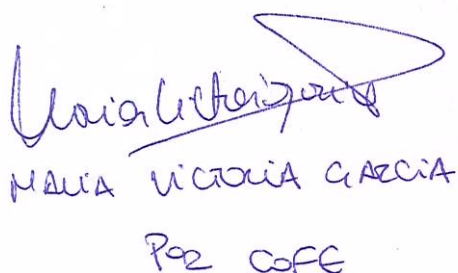 MARIA VICTORIA GARCIA
POR COFE